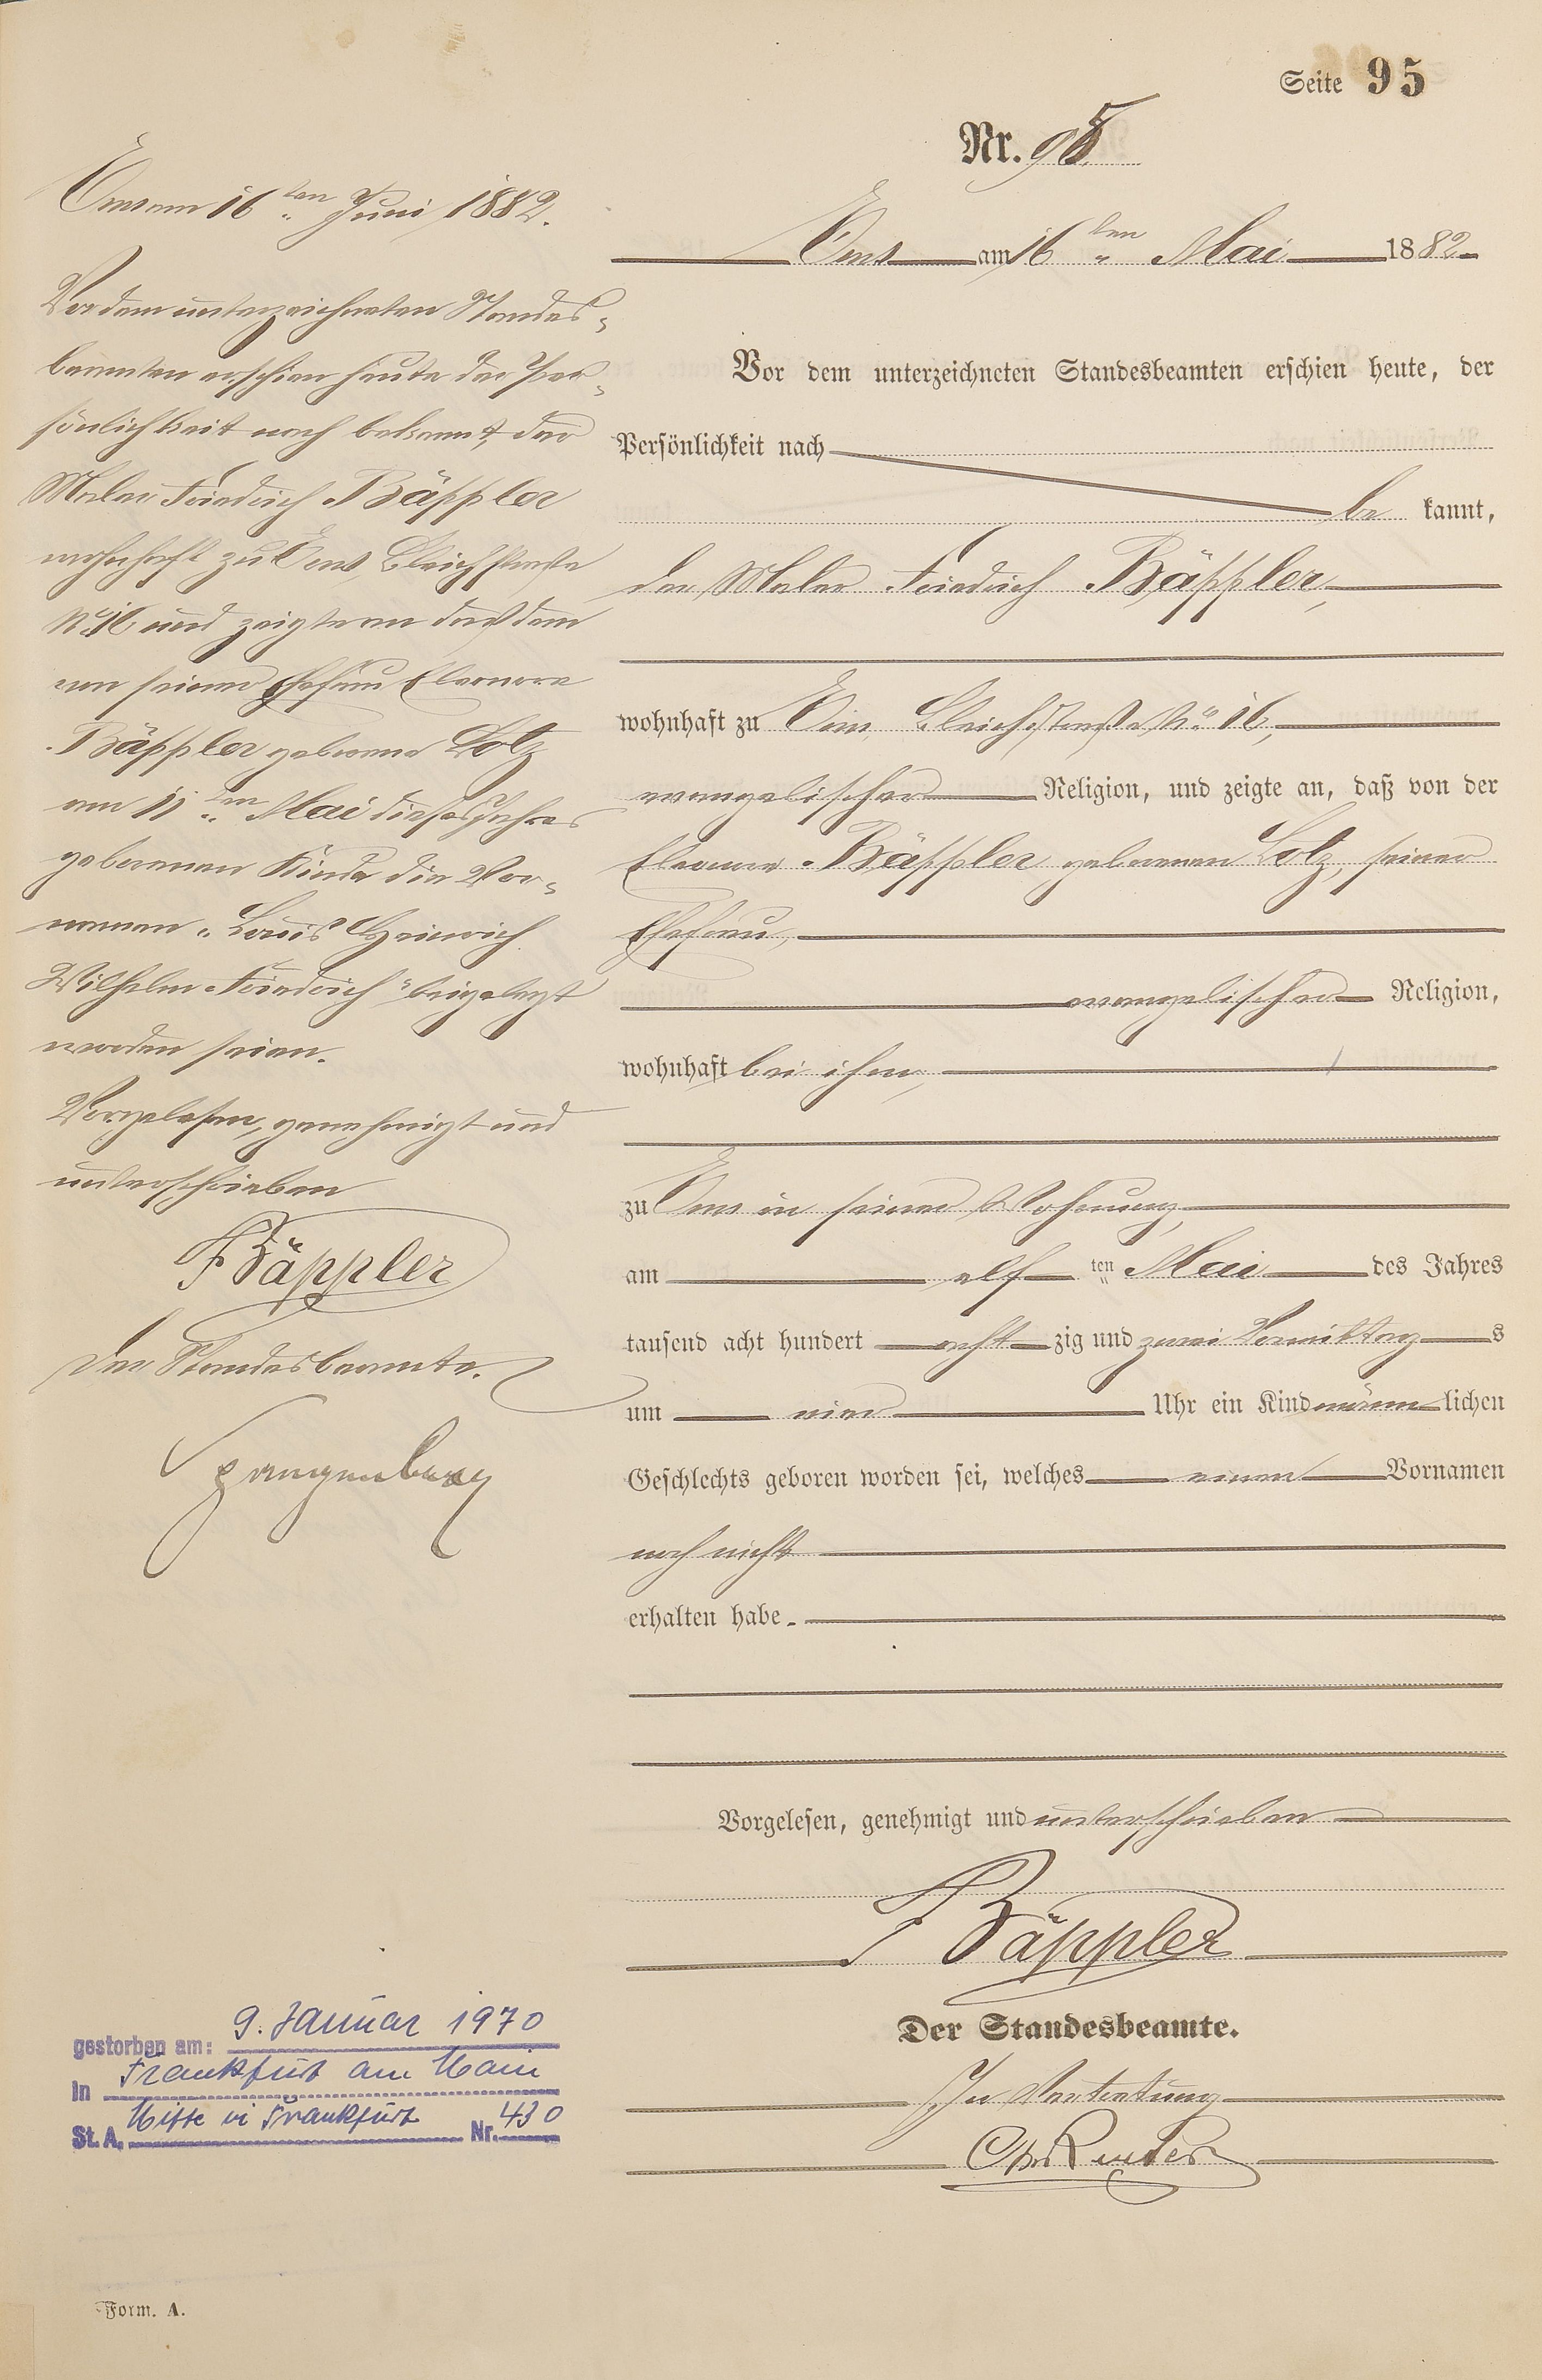 Seite 95
Nr. 95
Ems am 16ten Mai 1882
Vor dem unterzeichneten Standesbeamten erschien heute, der
Persönlichkeit nach
be kannt,
der Maler Friedrich Bäppler,
wohnhaft zu Ems, Bleichstraße No 16,
evangelischer Religion, und zeigte an, daß von der
Eleonore Bäppler geborenen Lotz, seiner
Ehefrau,
evangelischer Religion,
wohnhaft bei ihm,
zu Ems in seiner Wohnung,
am elf ten Mai des Jahres
tausend acht hundert acht zig und zwei Vormittag s
um vier Uhr ein Kind männ lichen
Geschlechts geboren worden sei, welches einen Vornamen
noch nicht
erhalten habe.
Vorgelesen, genehmigt und unterschrieben
F Bäppler
Der Standesbeamte.
In Vertretung
Ems am 16ten Juni 1882.
Vor dem unterzeichneten Standes-
beamten erschien heute der Per-
sönlichkeit nach bekannt, der
Maler Friedrich Bäppler
wohnhaft zu Ems, Bleichstraße
No 16 und zeigte an daß dem
von seiner Ehefrau Eleonore
Bäppler geborene Lotz
am 11ten Mai dieses Jahres
geborenen Kinde die Vor-
namen „Louis Heinrich
Wilhelm Friedrich" beigelegt
worden seien.
Vorgelesen, genehmigt und
unterschrieben
F Bäppler
Der Standesbeamte.
Spangenberg
gestorben am: 9. Januar 1970
in Frankfurt am Main
St. A. Mitte in Frankfurt Nr. 430
Form. A.